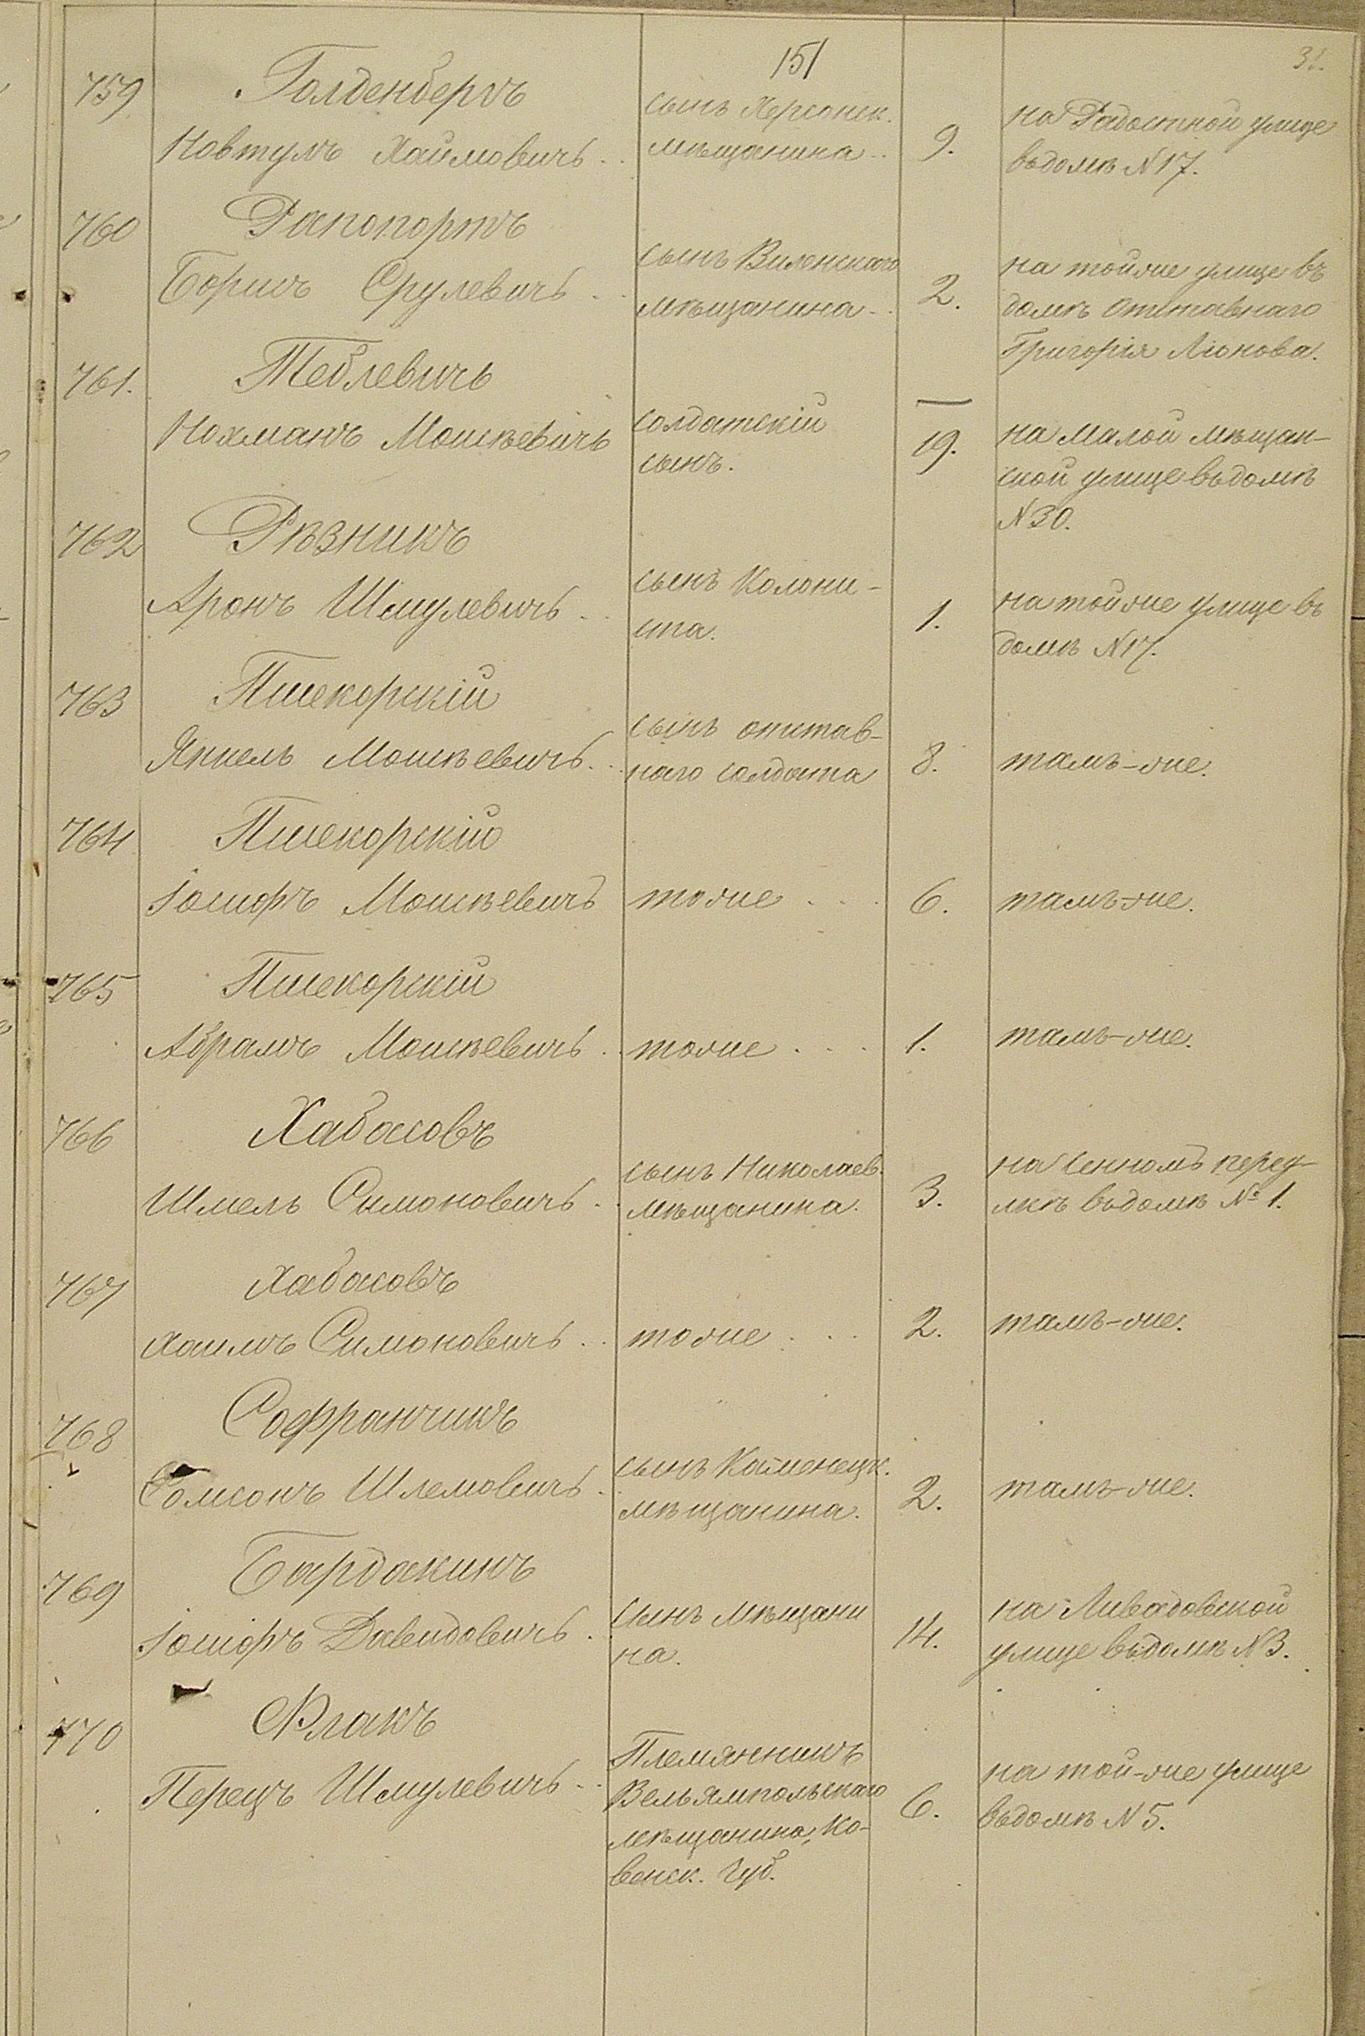 151
31.
759 Голденбергъ
Новтулъ Хаимовичъ . . сынъ Херсонск. мѣщанина . . 9. на Радостной улице въ домѣ N 17.
760 Рапопортъ
Борисъ Срулевичъ . сынъ Виленскаго мѣщанина . . 2. на тойже улице въ домѣ отставнаго Григорія Ліонова.
761. Теблевичъ
Нохманъ Мошкевичъ солдатскій сынъ. 19. на малой мѣщанской улице въ домѣ N 30.
762 Рѣзникъ
Аронъ Шмулевичъ . . сынъ Колониста. 1. на тойже улице въ домѣ N 17.
763 Пшекорскій
Янкель Мошкевичъ . . сынъ отставнаго солдата 8. тамъ-же.
764 Пшекорскій
Іосифъ Мошкевичъ тоже . . . 6. тамъ-же.
765 Пшекорскій
Абрамъ Мошкевичъ . . тоже . . . 1. тамъ-же.
766 Хабасовъ
Шмель Симоновичъ . . сынъ Николаев. мѣщанина. 3. на Сенномъ въ домѣ № 1.
767 Хабасовъ
Хаимъ Симоновичъ . . тоже . . . 2. тамъ-же.
768 Софранчикъ
Сомсонъ Шлемовичъ . сынъ Каменецк. мѣщанина. 2. тамъ-же.
769 Бардакинъ
Іосифъ Давидовичъ . сынъ мѣщани на. 14. на Ливадовской улице въ домѣ N 3.
770 Флакъ
Перецъ Шмулевичъ . . Племянникъ Вельямпольскаго мѣщанина, Ковенск. Губ. 6. на той-же улице въ домѣ N 5.